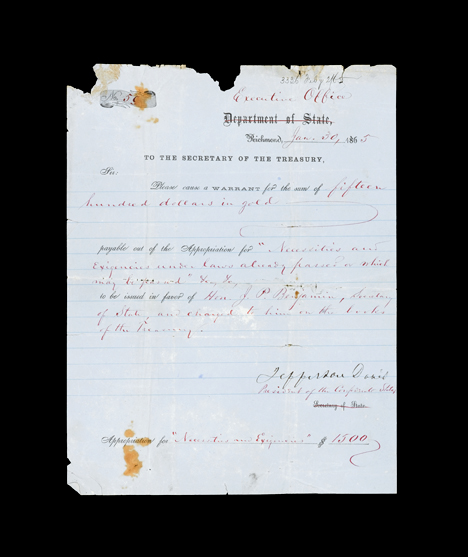 No. 
Executive Office
Department of State,
Richmond, Jan. 30, 1865
TO THE SECRETARY OF THE TREASURY,
Sir
Please cause a WARRANT for the sum of fifteen
hundred dollars in gold
payable out of the Appropriation for "Necessities and
Exigencies under laws already passed or which
may be passed" &c, &c,
to be issued in favor of Hon. J. P. Benjamin, Secretary
of State, and charged to him on the books
of the Treasury.
Jefferson Davis
President of the Confederate States
Secretary of State.
Appropriation for "Necessities and Exigencies" $ 1500